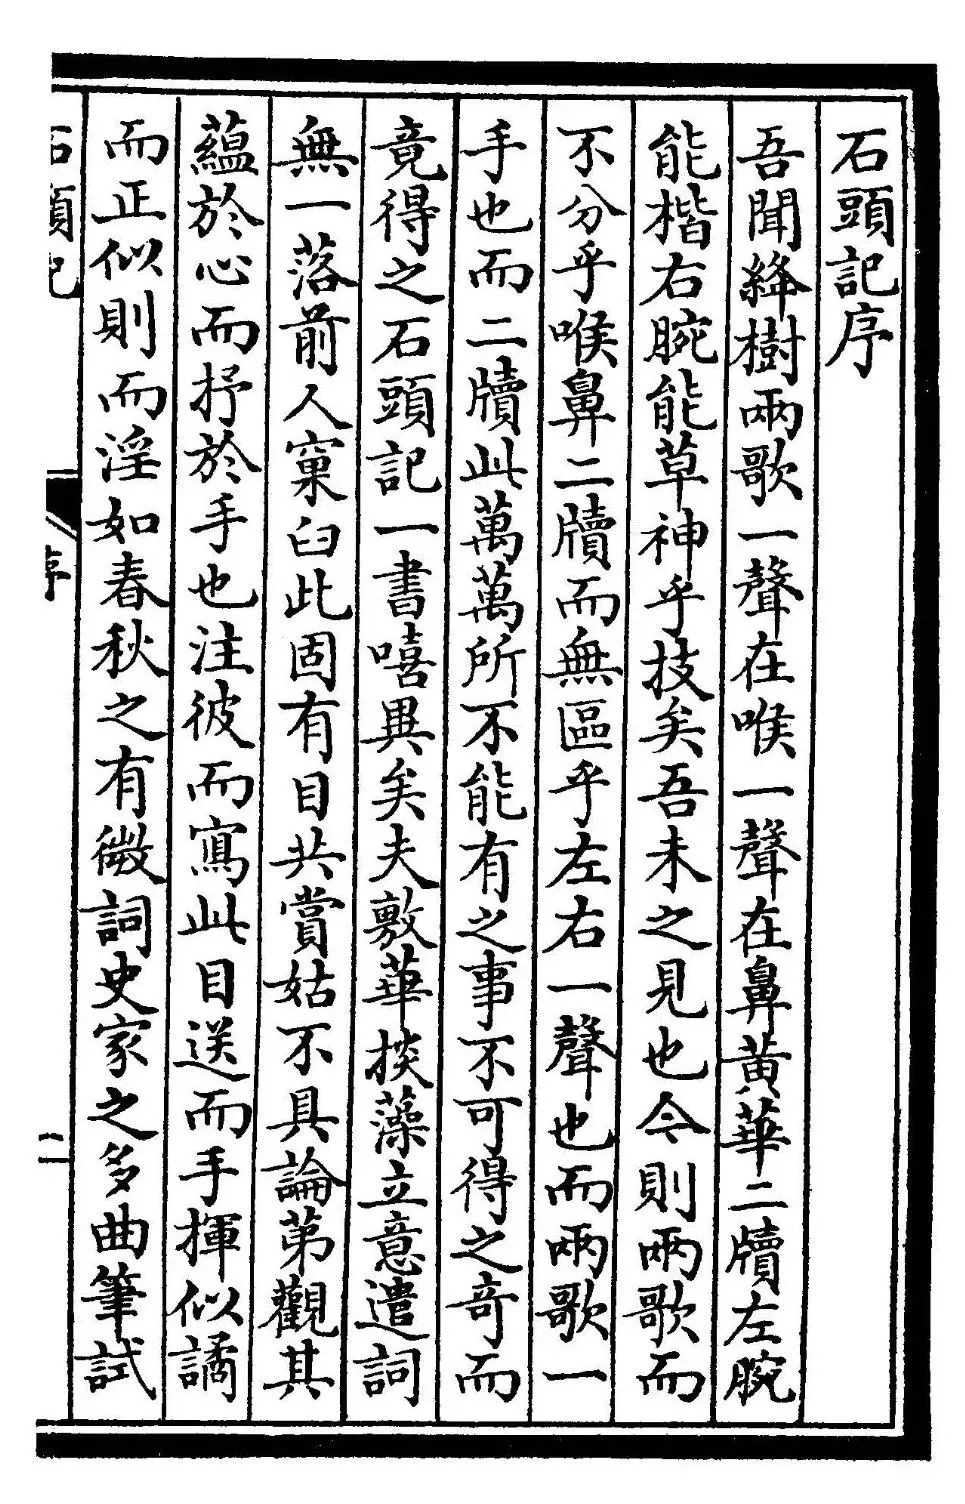 石頭記序
吾聞絳樹兩歌一聲在喉一聲在鼻黃華二牘左腕
能楷右腕能草神乎技矣吾未之見也今則兩歌而
不分乎喉鼻二牘而無區乎左右一聲也而兩歌一
手也而二牘此萬萬所不能有之事不可得之奇而
竟得之石頭記一書嘻異矣夫敷華掞藻立意遣詞
無一落前人窠臼此固有目共賞姑不具論第觀其
蘊於心而抒於手也注彼而寫此目送而手揮似譎
而正似則而淫如春秋之有微詞史家之多曲筆試
石頭記
序
一